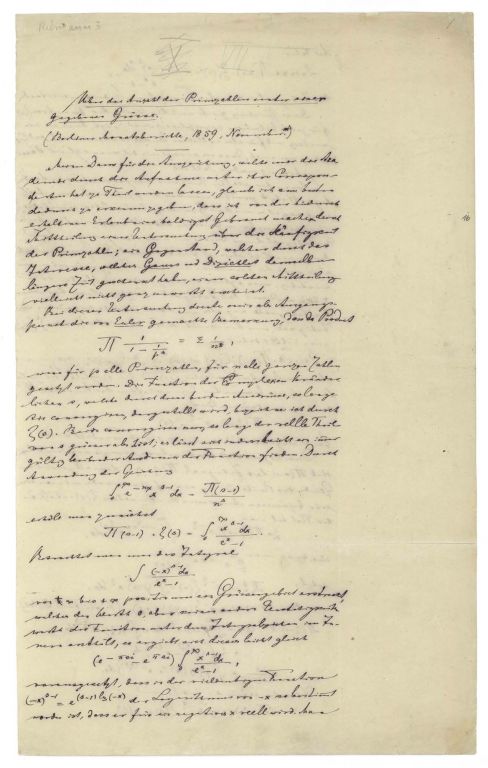 Ueber die Anzahl der Primzahlen unter einer
gegebenen Grösse.
(Berliner Monatsberichte, 1859, November)
Meinen Dank für die Auszeichnung, welche mir die Aka-
demie durch die Aufnahme unter ihre Correspon-
denten hat zu Theil werden lassen, glaube ich am besten
dadurch zu erkennen zu geben, dass ich von der hiedurch
erhaltenen Erlaubniss baldigst Gebrauch mache durch
Mittheilung einer Untersuchung über die Häufigkeit
der Primzahlen; ein Gegenstand, welcher durch das
Interesse, welches Gauss und Dirichlet demselben
längere Zeit geschenkt haben, einer solchen Mittheilung
vielleicht nicht ganz unwerth erscheint.
Bei dieser Untersuchung diente mir als Ausgangs-
punkt die von Euler gemachte Bemerkung, dass das Product
∏ 1/(1 − 1/p^s) = Σ 1/n^s,
wenn für p alle Primzahlen, für n alle ganzen Zahlen
gesetzt werden. Die Function der complexen Veränder-
lichen s, welche durch diese beiden Ausdrücke, so lange
sie convergiren, dargestellt wird, bezeichne ich durch
ζ(s). Beide convergiren nur, so lange der reelle Theil
von s grösser als 1 ist; es lässt sich indess leicht ein immer
gültig bleibender Ausdruck der Function finden. Durch
Anwendung der Gleichung
∫₀^∞ e^(−nx) x^(s−1) dx = ∏(s−1)/n^s
erhält man zunächst
∏(s−1) · ζ(s) = ∫₀^∞ x^(s−1) dx/(e^x − 1).
Betrachtet man nun das Integral
∫ (−x)^(s−1) dx/(e^x − 1)
von +∞ bis +∞ positiv um ein Grössengebiet erstreckt,
welches den Werth 0, aber keinen andern Unstetigkeits-
werth der Function unter dem Integralzeichen im In-
nern enthält, so ergiebt sich dieses leicht gleich
(e^(−πsi) − e^(πsi)) ∫₀^∞ x^(s−1) dx/(e^x − 1),
vorausgesetzt, dass in der vieldeutigen Function
(−x)^(s−1) = e^((s−1) lg(−x)) der Logarithmus von −x so bestimmt
worden ist, dass er für ein negatives x reell wird. Man